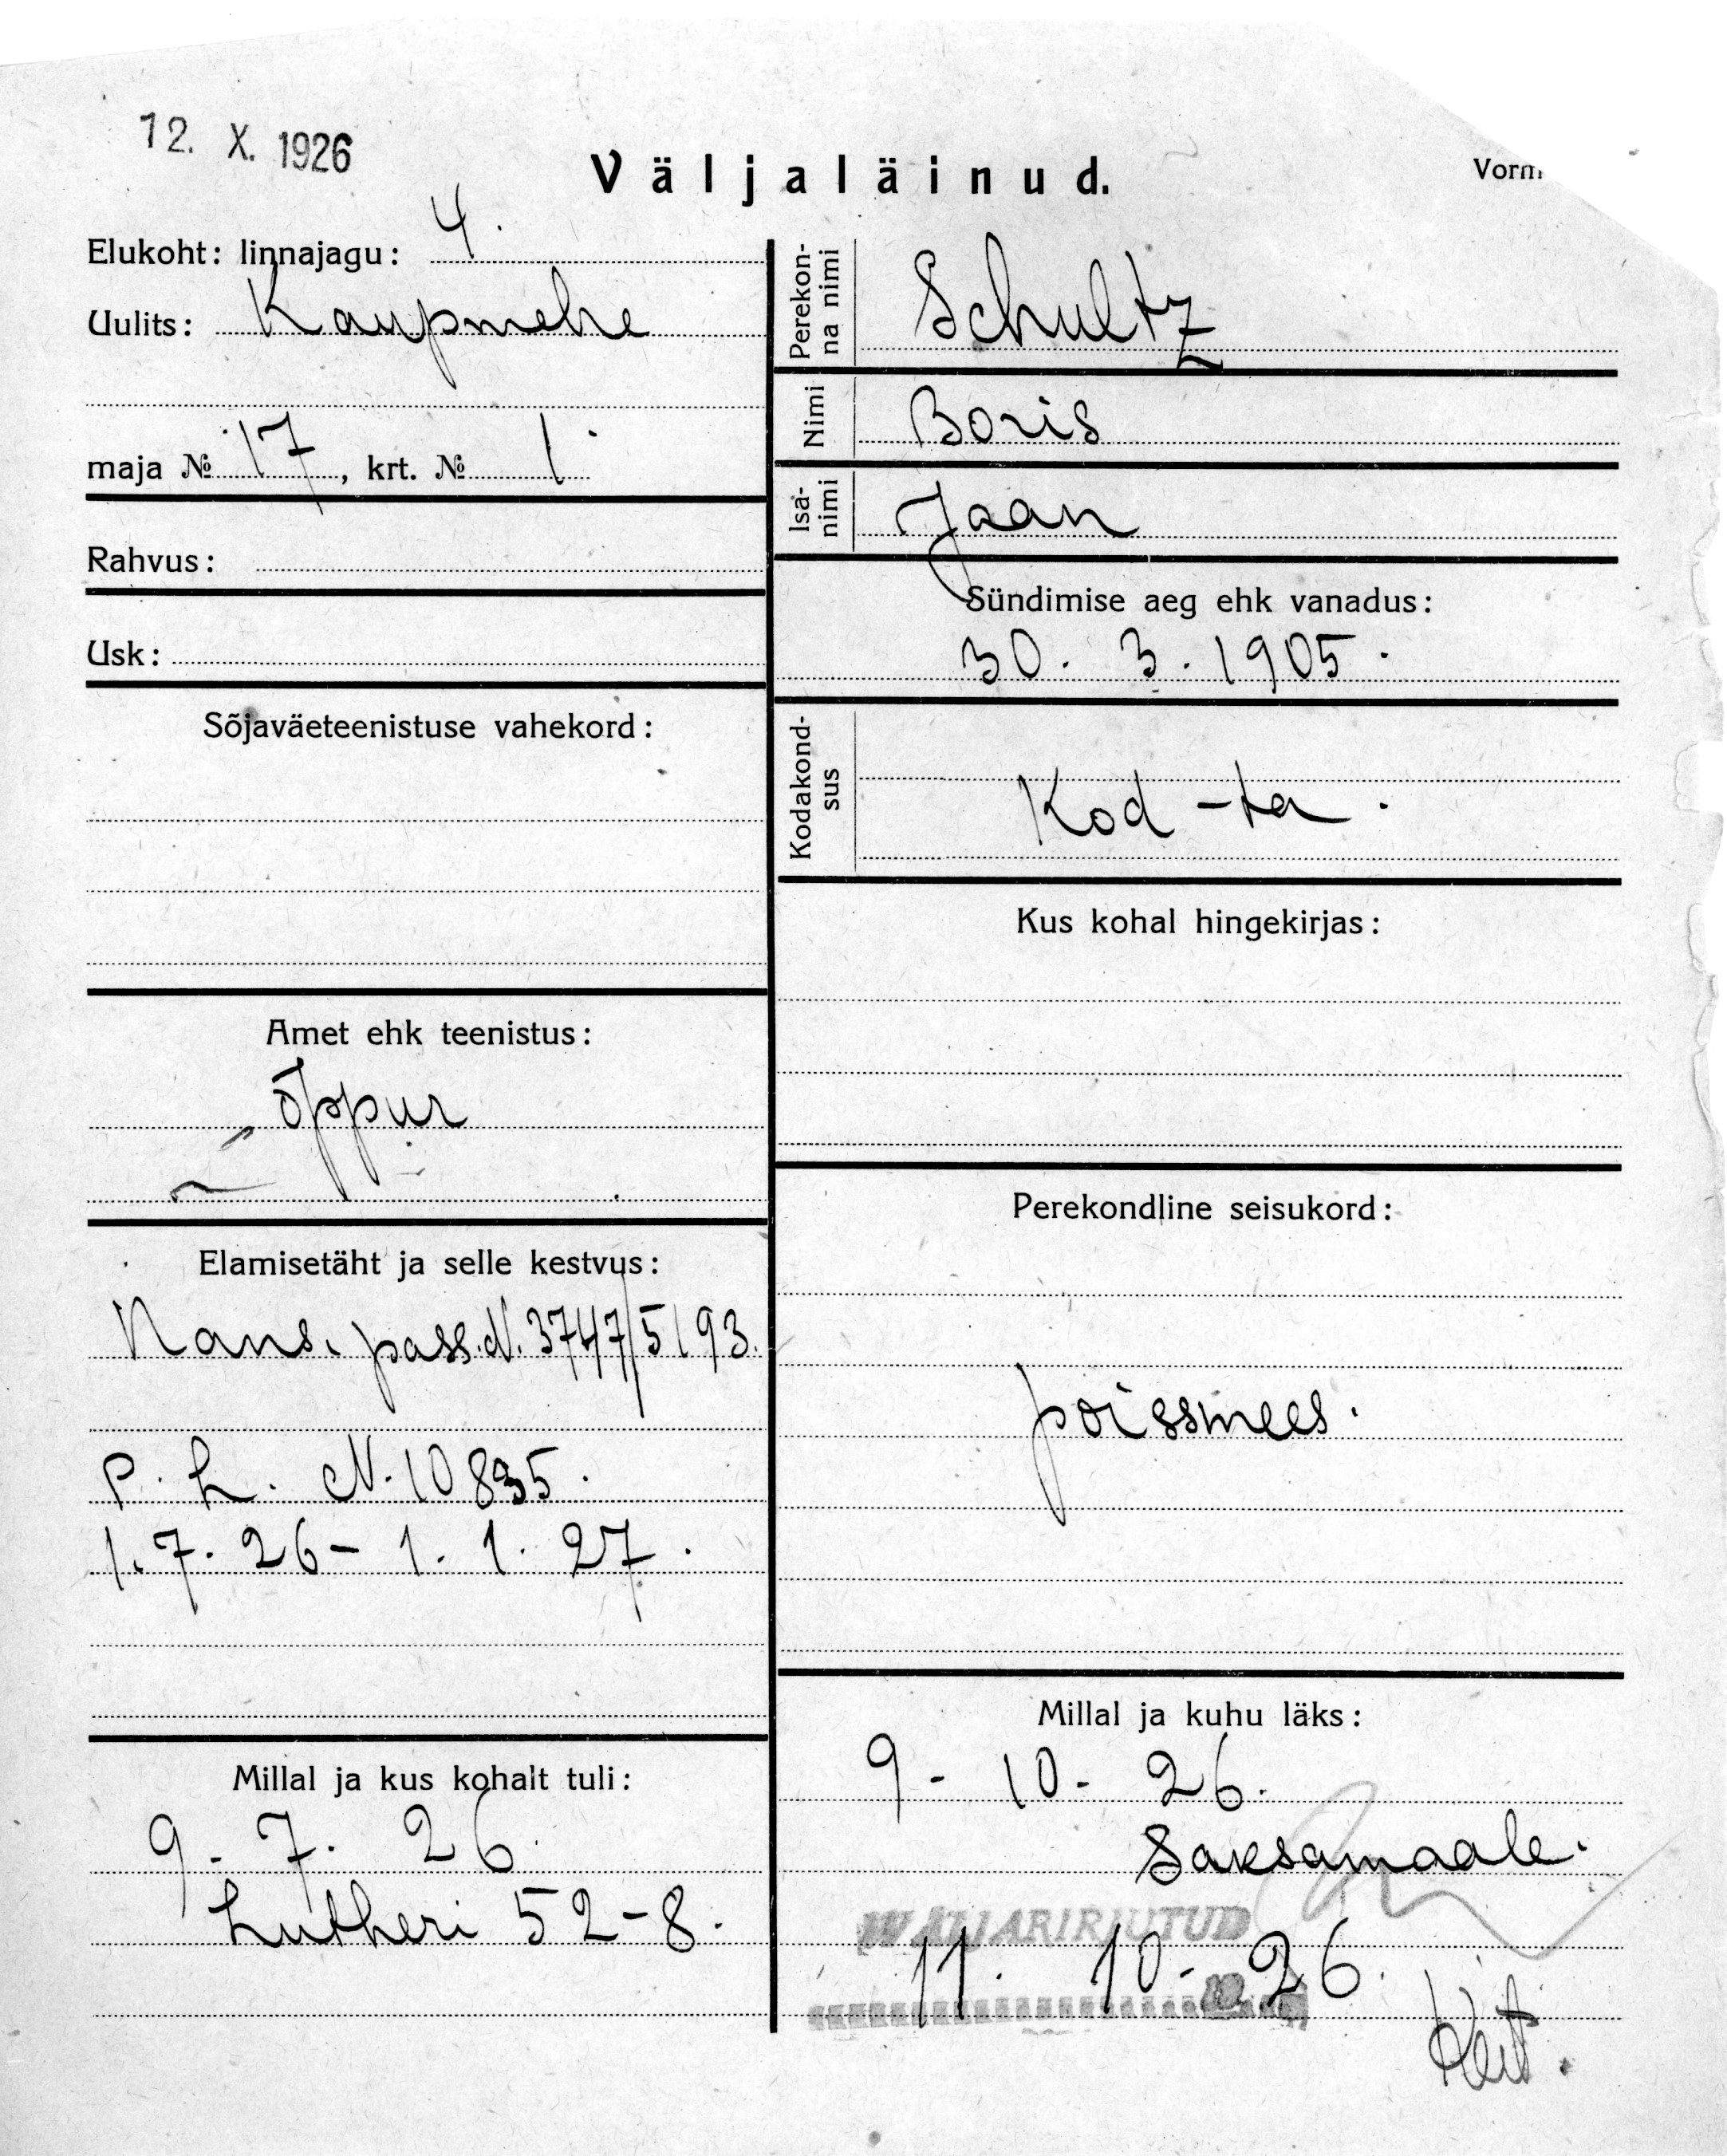 12. X. 1926
Väljaläinud.
Vorm
Elukoht: linnajagu: 4.
Uulits: Kaupmehe
maja № 17, krt. № 1.
Rahvus:
Usk:
Sõjaväeteenistuse vahekord:
Amet ehk teenistus:
õppur
Elamisetäht ja selle kestvus:
Nans. pass. N. 3747/5193.
P. L. N. 10835.
1. 7. 26 – 1. 1. 27.
Millal ja kus kohalt tuli:
9. 7. 26.
Lutheri 52-8.
Perekonna nimi
Schultz
Nimi
Boris
Isanimi
Jaan
Sündimise aeg ehk vanadus:
30. 3. 1905.
Kodakondsus
Kod-ta.
Kus kohal hingekirjas:
Perekondline seisukord:
poissmees.
Millal ja kuhu läks:
9 - 10 - 26.
Saksamaale.
11. 10. 26.